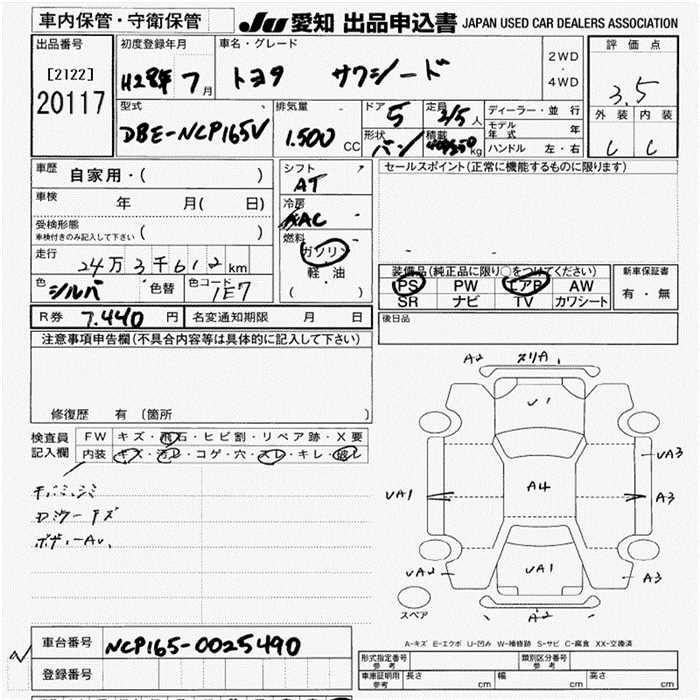 車内保管・守衛保管
JU 愛知 出品申込書 JAPAN USED CAR DEALERS ASSOCIATION
出品番号
[2122]
20117
初度登録年月
H28年 7月
車名・グレード
トヨタ サクシード
2WD
・
4WD
評価点
3.5
外装 内装
C C
型式
DBE-NCP165V
排気量
1.500 CC
ドア 5
形状 バン
定員 2/5人
積載 kg
ディーラー・並行
モデル年式 年
ハンドル 左・右
車歴 自家用・( )
車検 年 月( 日)
受検形態
車検付きのみ記入して下さい ( )
走行 24万3千612km
色 シルバ 色替 色コード 1E7
シフト
AT
冷房
AAC
燃料
ガソリン
軽油
( )
セールスポイント(正常に機能するものに限ります)
装備品(純正品に限り○をつけてください)
PS PW エアB AW
SR ナビ TV カワシート
新車保証書
有・無
R券 7.440 円 名変通知期限 月 日
後日品
注意事項申告欄(不具合内容等は具体的に記入して下さい)
修復歴 有 〔箇所 〕
検査員記入欄
FW キズ・飛石・ヒビ割・リペア跡・X要
内装 キズ・汚レ・コゲ・穴・スレ・キレ・破レ
ボディーAU、
A2 スリA
U1
UA3
UA1 A4 A3
UA2 UA1 A3
A2
スペア
A-キズ E-エクボ U-凹み W-補修跡 S-サビ C-腐食 XX-交換済
車台番号 NCP165-0025490
登録番号
形式指定番号 参考
類別区分番号 参考
車庫証明用 参考 長さ cm 幅 cm 高さ cm